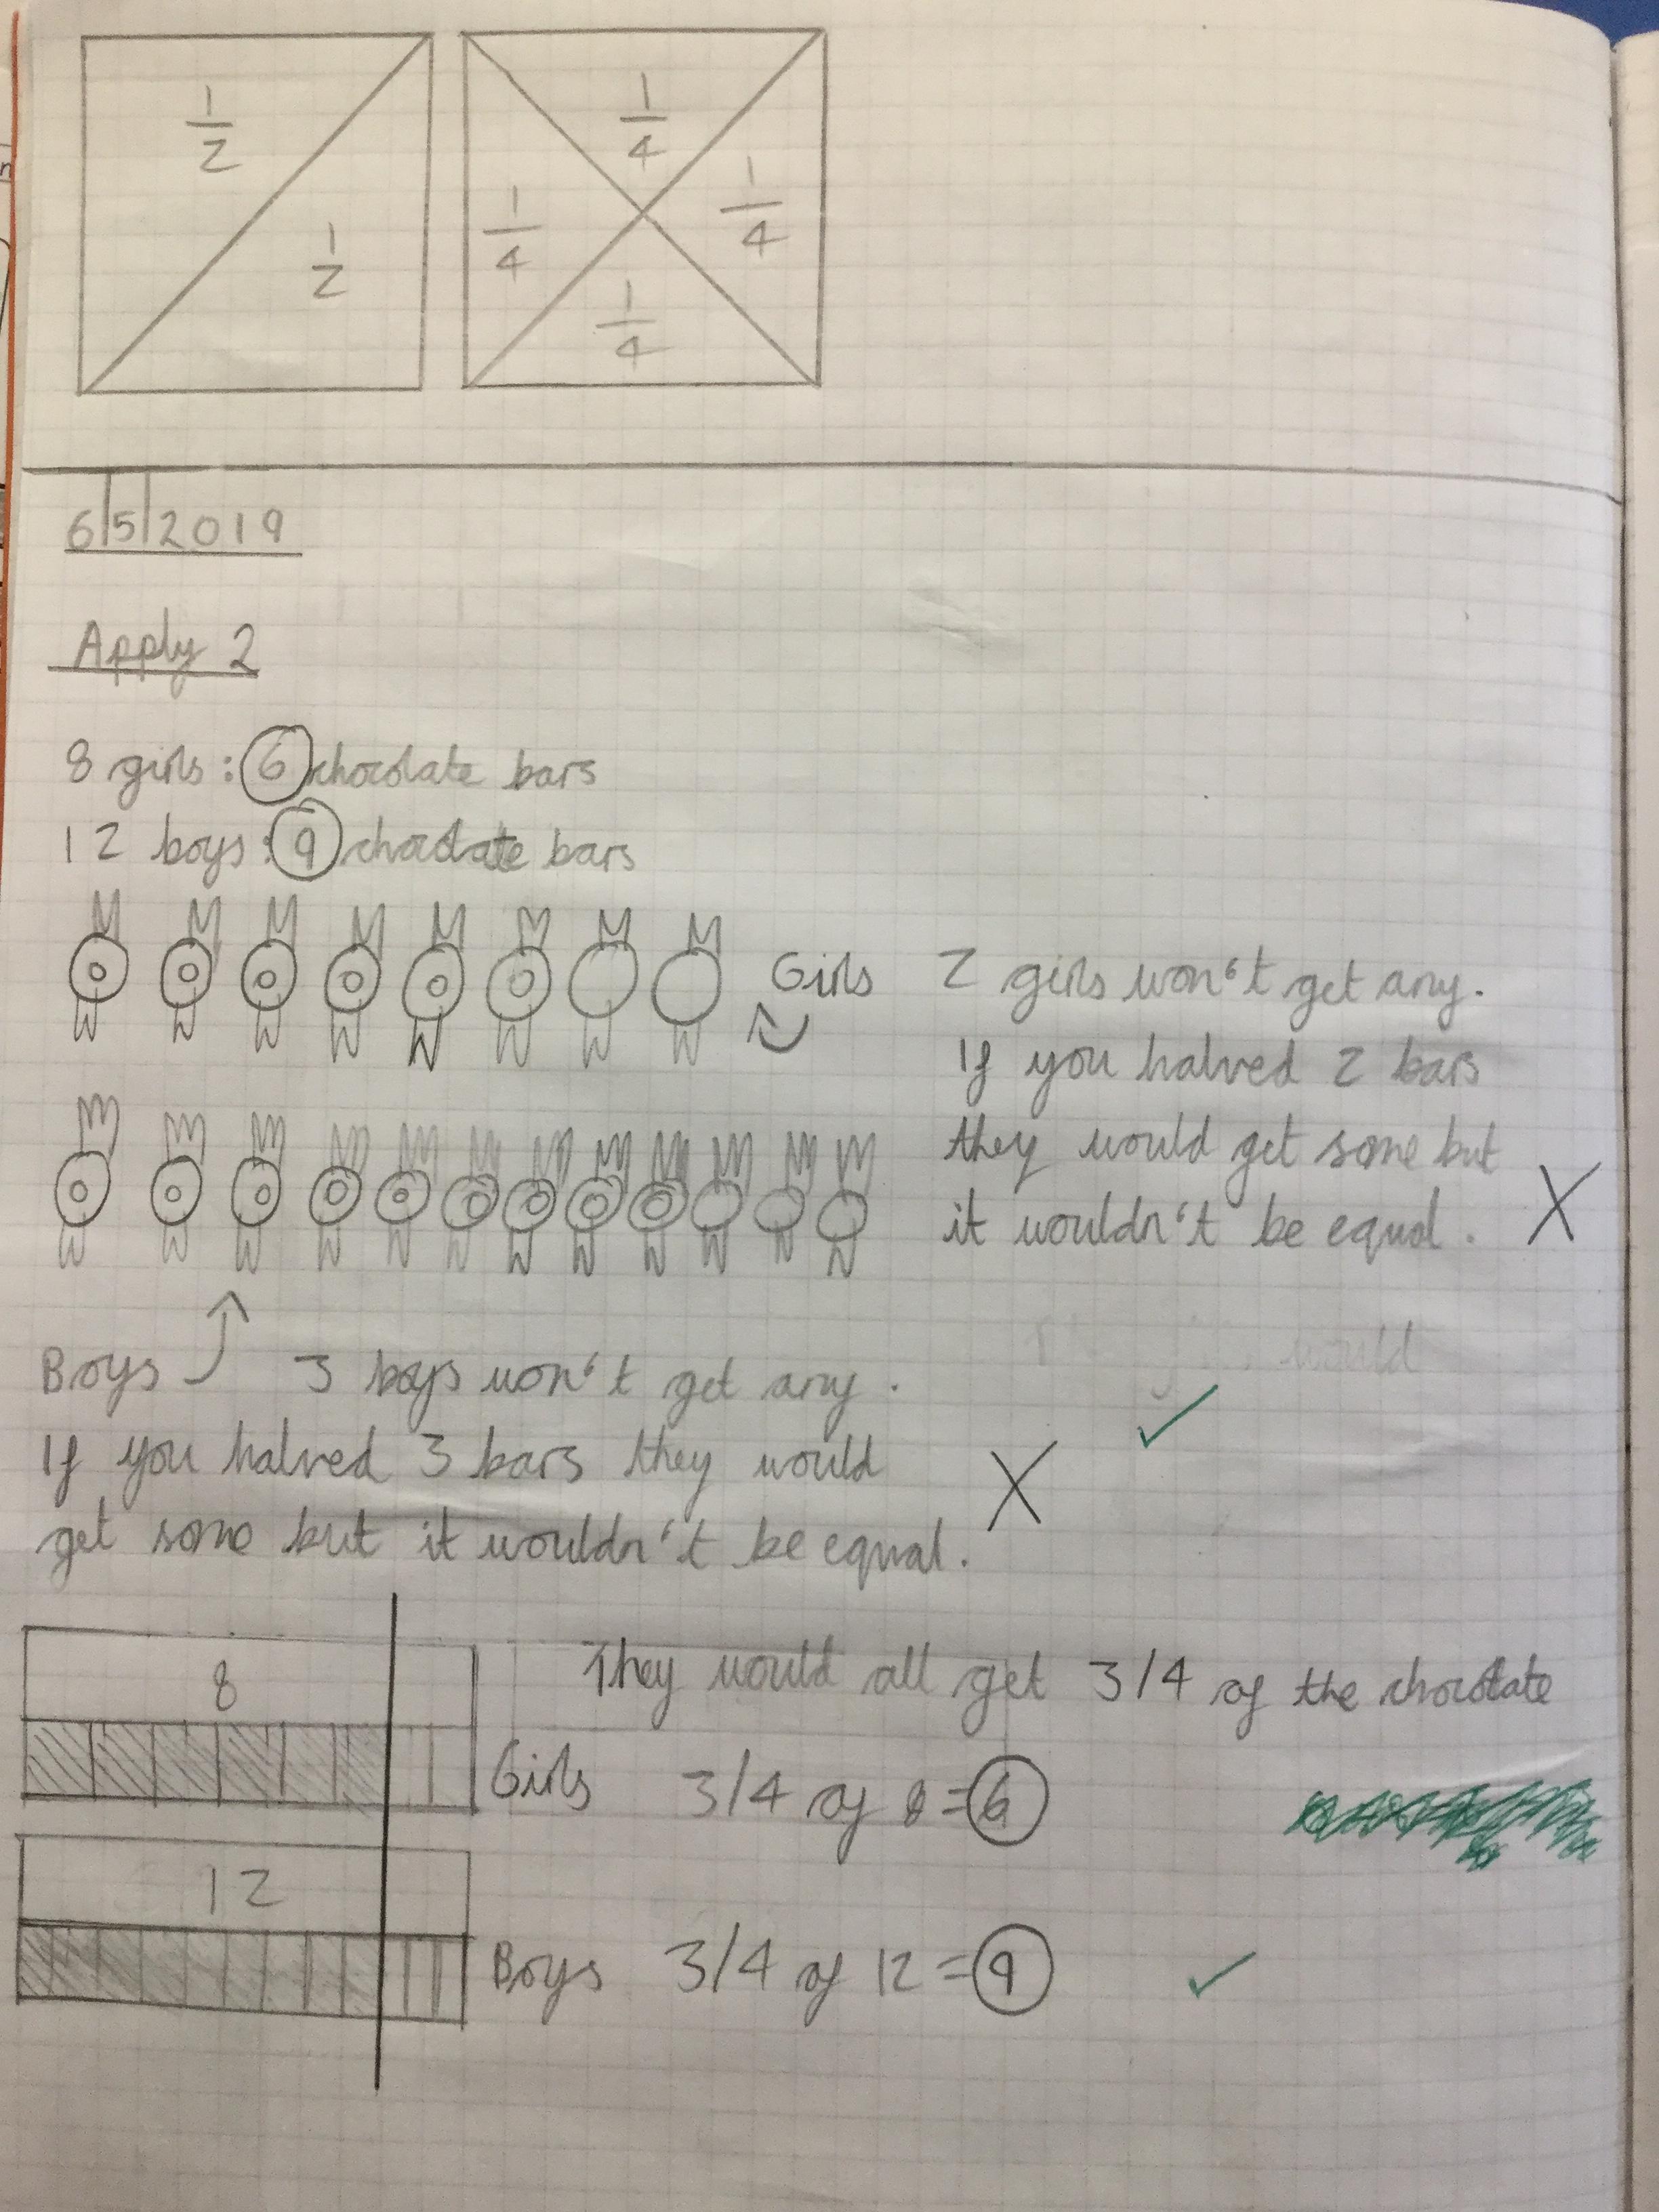 1/2
1/2
1/4
1/4
1/4
1/4
6/5/2019
Apply 2
8 girls: 6 chocolate bars
12 boys: 9 chocolate bars
Girls
2 girls won't get any.
If you halved 2 bars
they would get some but
it wouldn't be equal. X
would
Boys
3 boys won't get any.
If you halved 3 bars they would
get some but it wouldn't be equal. X
8
They would all get 3/4 of the chocolate
Girls 3/4 of 8=6
12
Boys 3/4 of 12=9